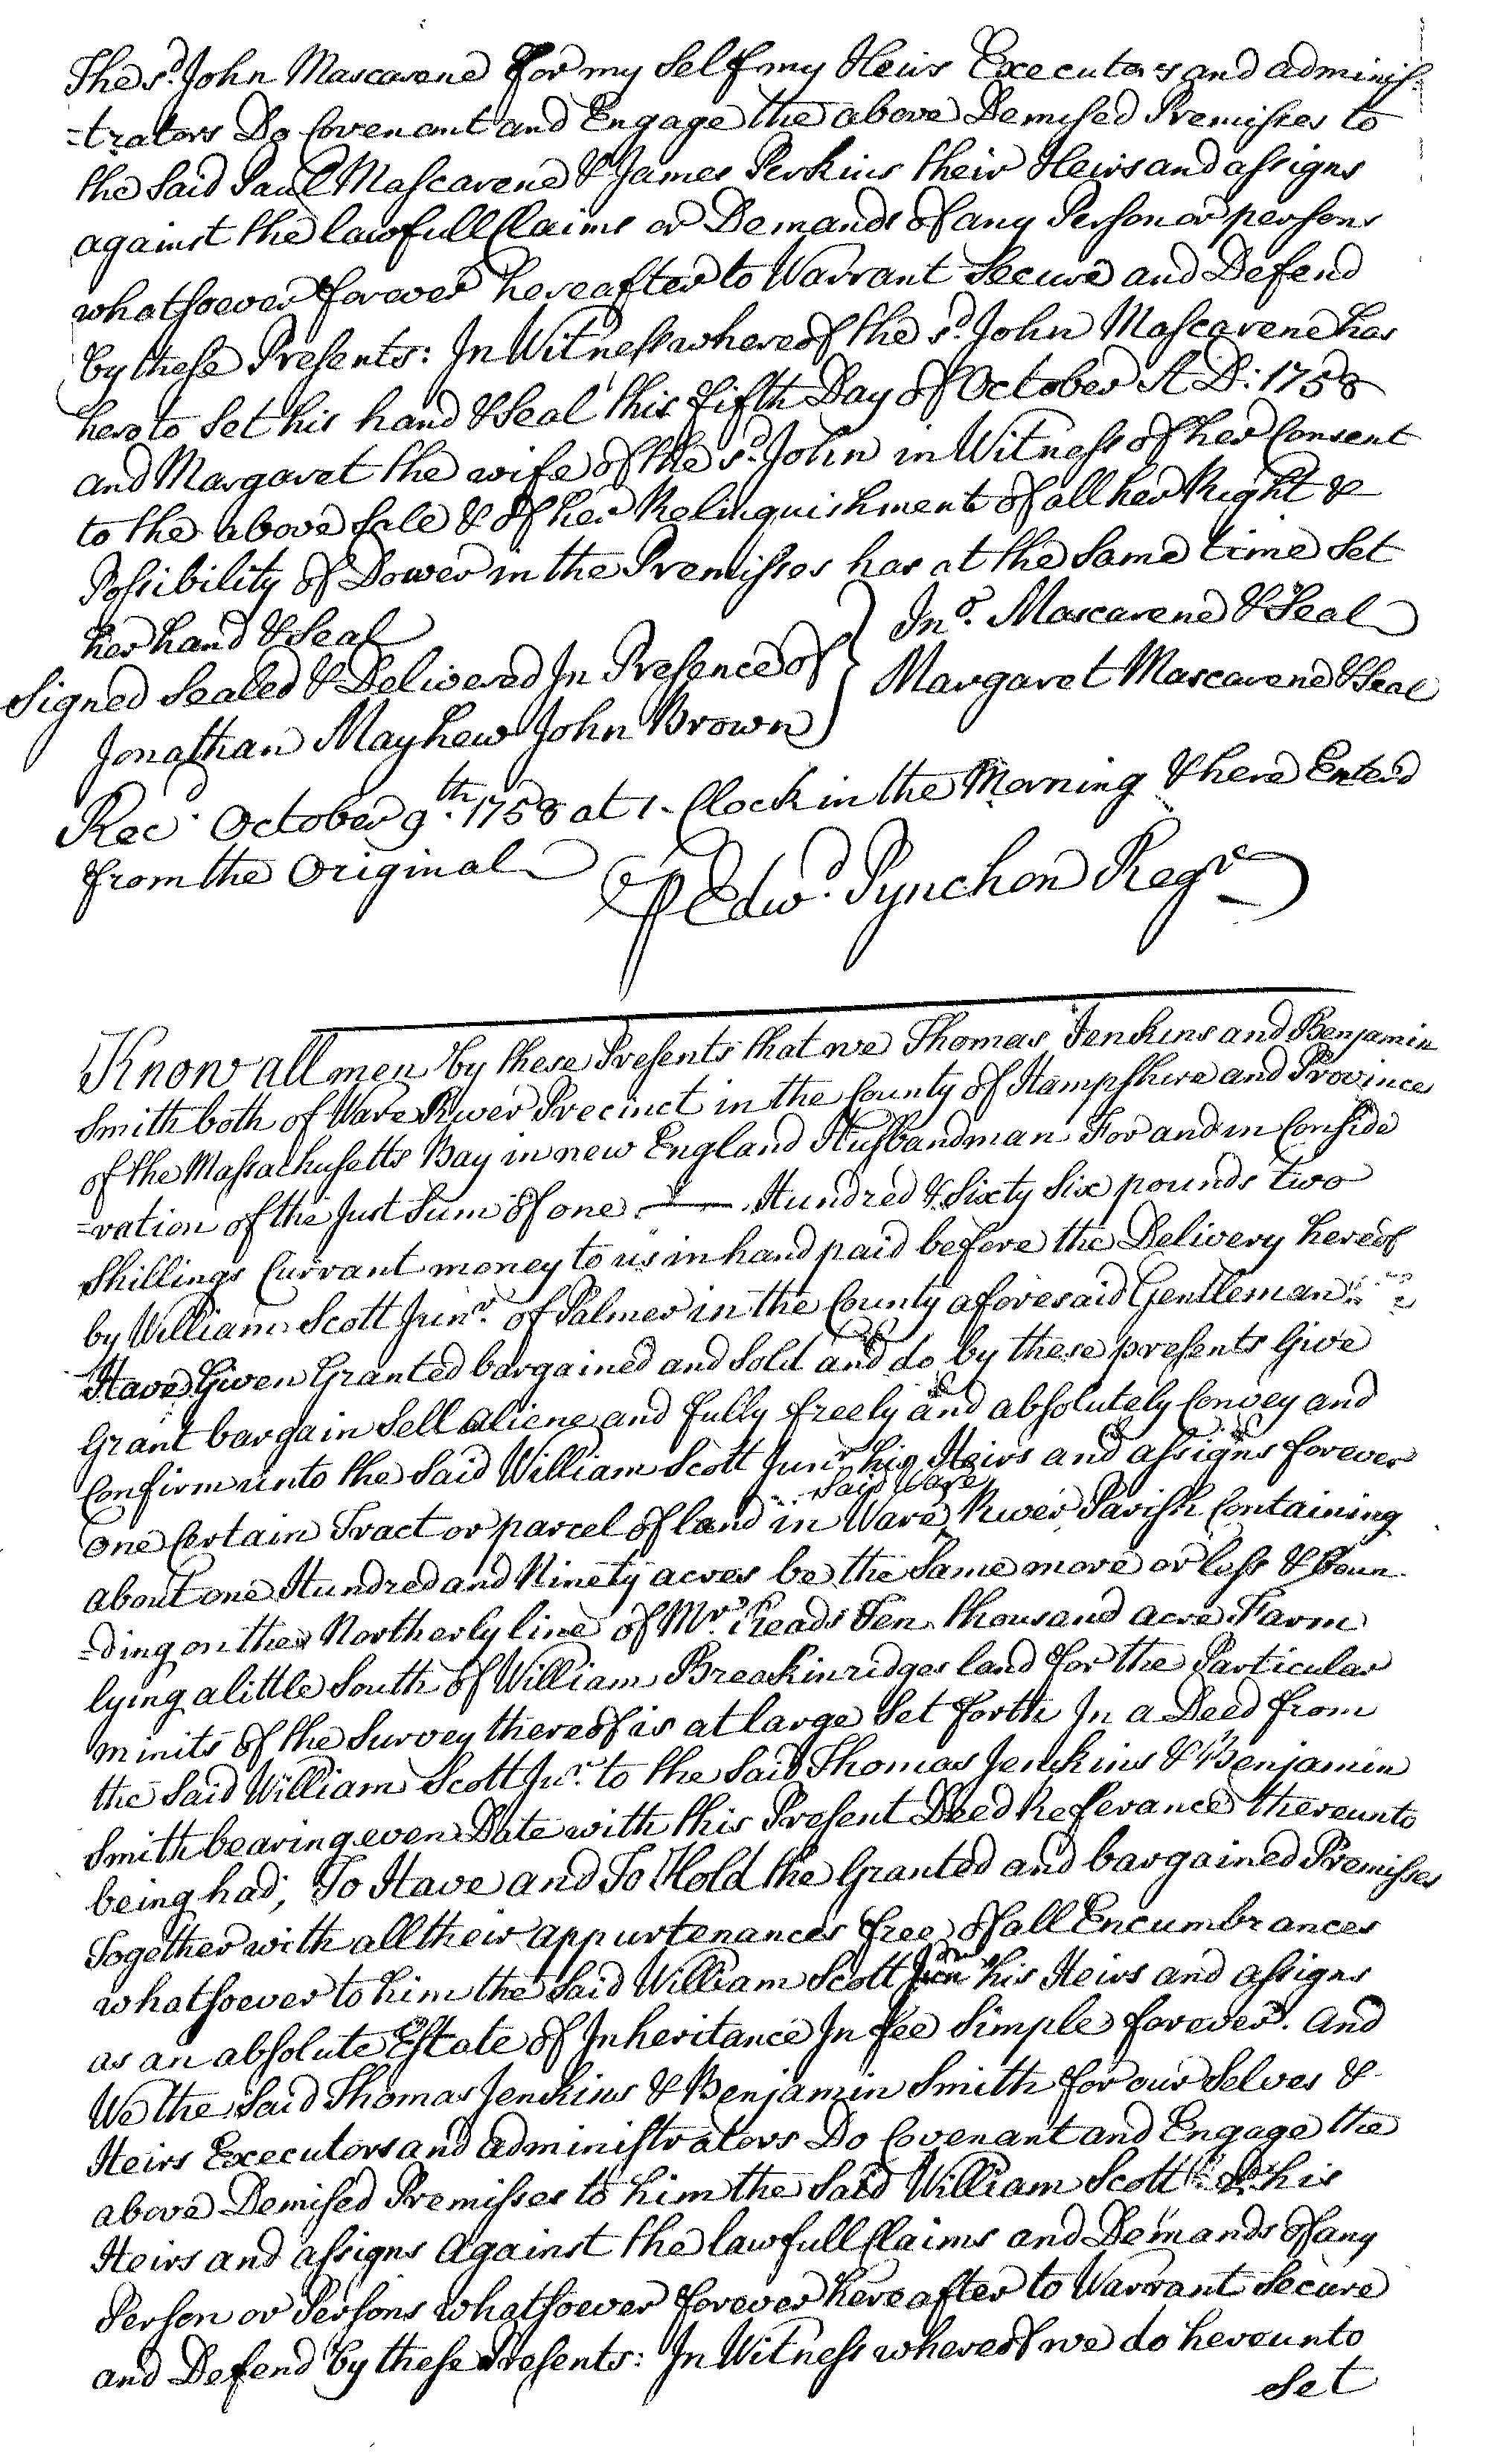 The sd. John Mascarene for my Self my Heirs Executors and adminis-
-trators Do Covenant and Engage the above Demised Premisses to
the Said Paul Mascarene & James Perkins their Heirs and assigns
against the lawfull Claims or Demands of any Person or persons
whatsoever forever hereafter to Warrant Secure and Defend
by these Presents: In Witness whereof the sd. John Mascarene has
hereto Set his hand & Seal this fifth Day of October A. D: 1758
and Margaret the wife of the sd. John in Witness of her Consent
to the above Sale & of her Relinquishment of all her Right &
Possibility of Dower in the Premisses has at the Same time Set
her hand & Seal
Jno. Mascarene & Seal
Signed Sealed & Delivered In Presence of
Margaret Mascarene & Seal
Jonathan Mayhew John Brown
Rec'd October 9th. 1758 at 1- Clock in the Morning & here Enterd
from the Original
⅌ Edwd. Pynchon Regr
Know all men by these Presents that we Thomas Jenkins and Benjamin
Smith both of Ware River Precinct in the County of Hampshire and Province
of the Massachusetts Bay in new England Husbandman For and in Conside
-ration of the Just Sum of one Hundred & Sixty Six pounds two
Shillings Currant money to us in hand paid before the Delivery hereof
by William Scott Junr. of Palmer in the County aforesaid Gentleman
Have Given Granted bargained and Sold and do by these presents Give
Grant bargain Sell aliene and fully freely and absolutely Convey and
Confirm unto the Said William Scott Junr his Heirs and assigns forever
said Ware
One Certain Tract or parcel of land in Ware River Parish Containing
about one Hundred and Ninety acres be the Same more or less & boun
-ding on the Northerly line of Mr. Reads Ten thousand acre Farm
lying a little South of William Breakinridges land for the Particular
minits of the Survey thereof is at large Set forth In a Deed from
the Said William Scott Jur. to the Said Thomas Jenkins & Benjamin
Smith bearing even Date with this Present Deed Referance thereunto
being had; To Have and To Hold the Granted and bargained Premisses
Together with all their appurtenances free of all Encumbrances
whatsoever to him the Said William Scott Jun his Heirs and assigns
as an absolute Estate of Inheritance In fee Simple forever. And
We the Said Thomas Jenkins & Benjamin Smith for our Selves &
Heirs Executors and administrators Do Covenant and Engage the
above Demised Premisses to him the Said William Scott his
Heirs and assigns Against the lawfull Claims and Demands of any
Person or Persons whatsoever forever hereafter to Warrant Secure
and Defend by these Presents: In Witness whereof we do hereunto
Set